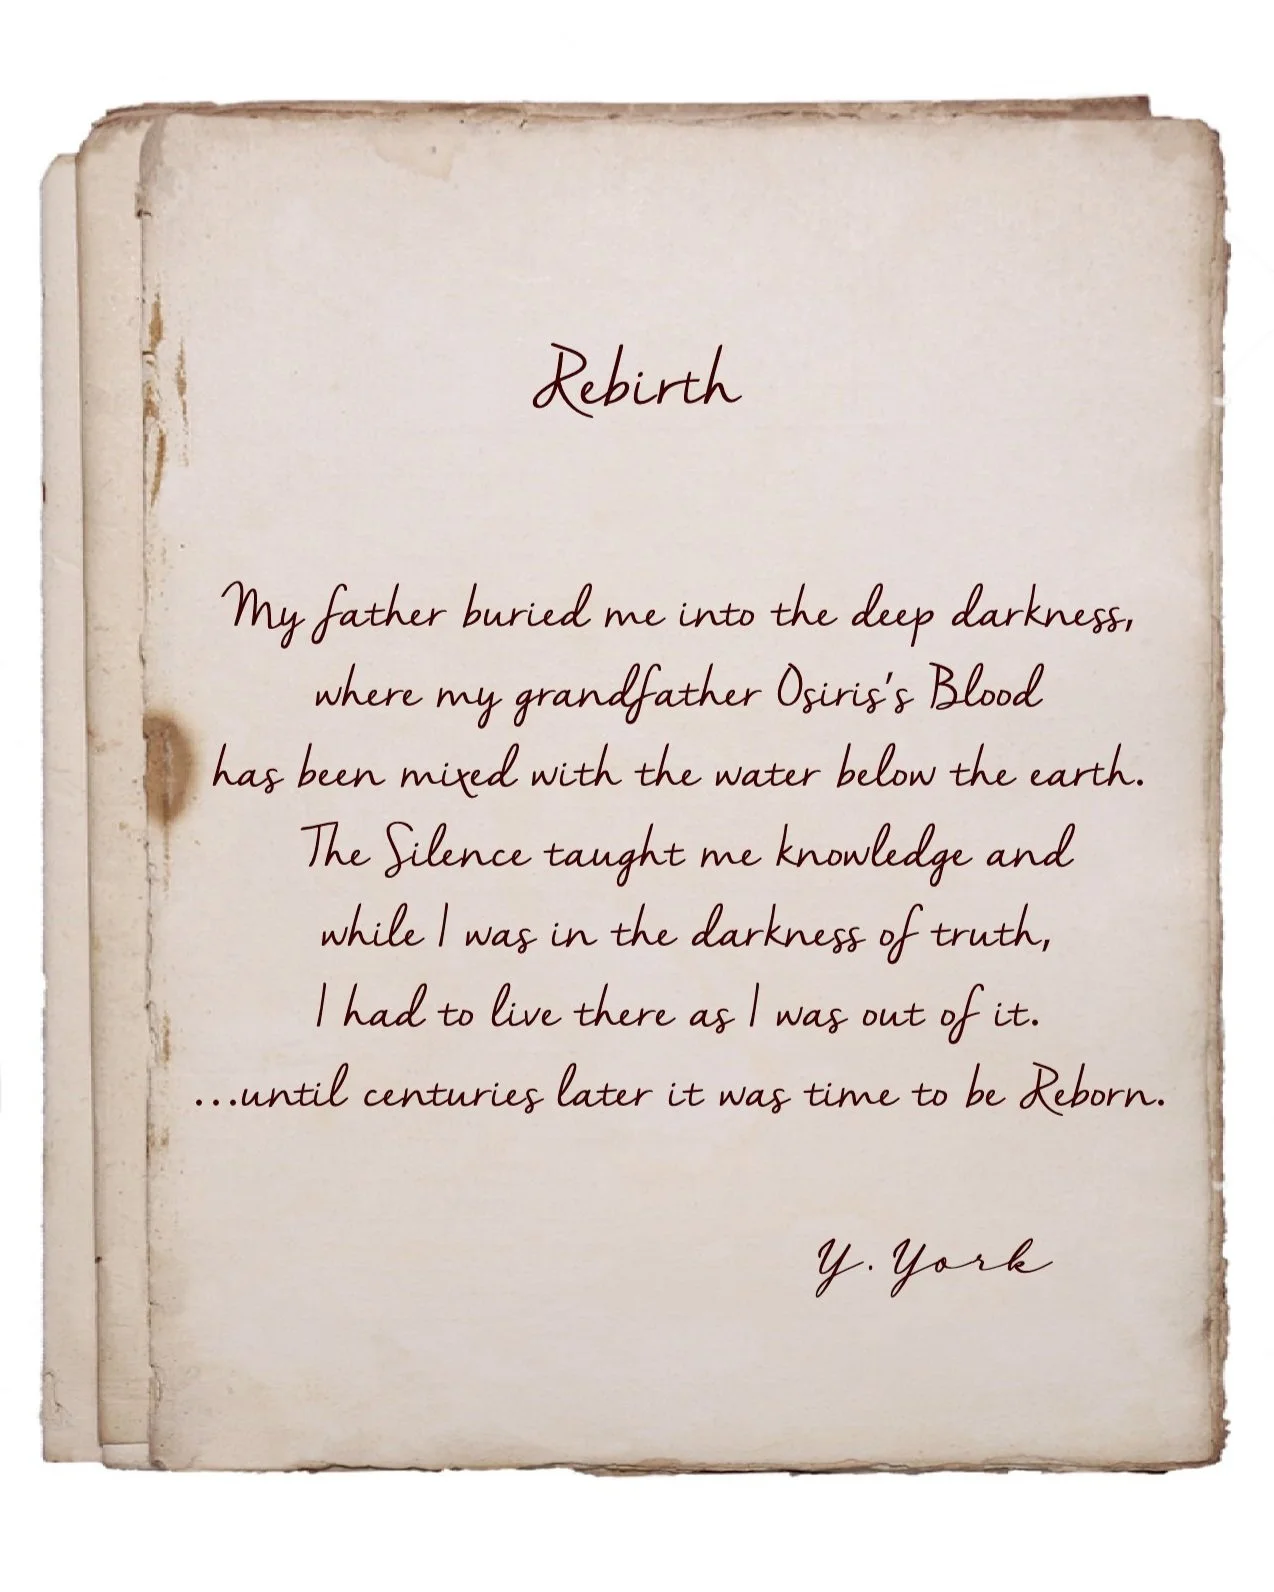 Rebirth
My father buried me into the deep darkness,
where my grandfather Osiris's Blood
has been mixed with the water below the earth.
The Silence taught me knowledge and
while I was in the darkness of truth,
I had to live there as I was out of it.
...until centuries later it was time to be Reborn.
Y. York